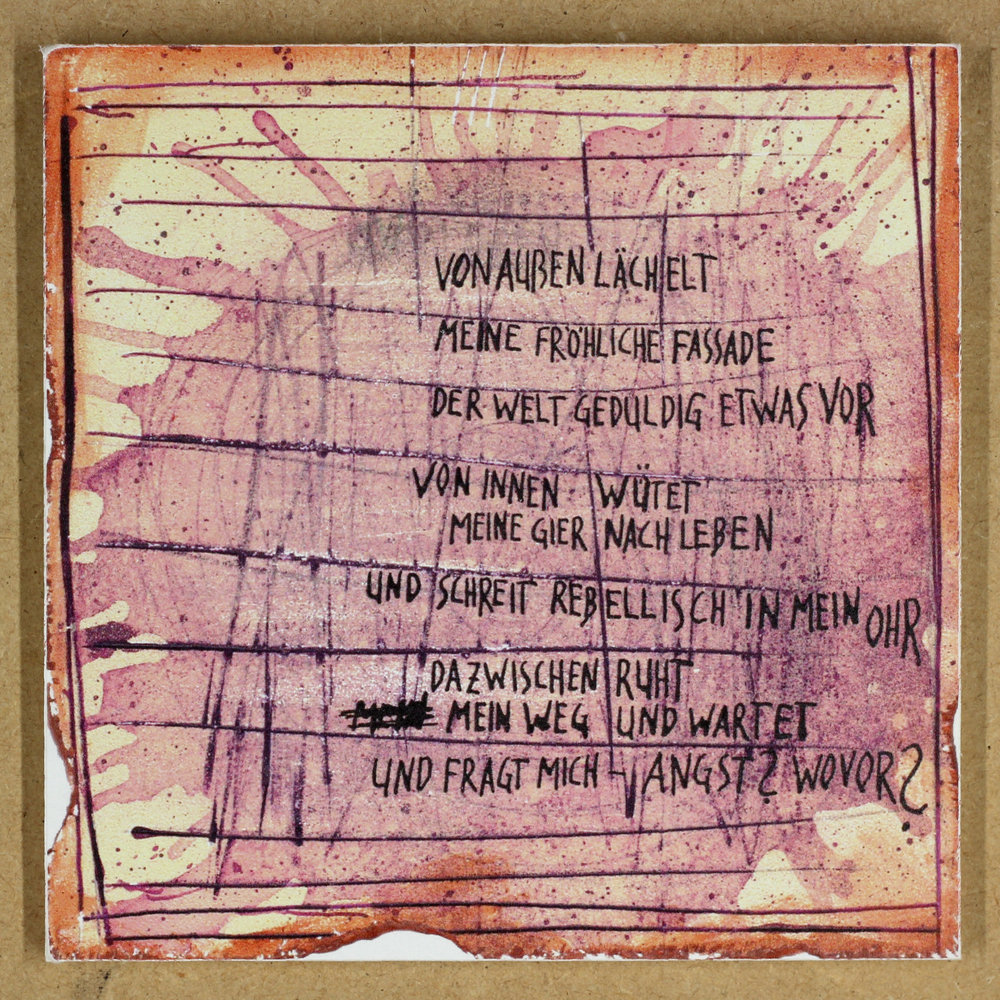 VON AUẞEN LÄCHELT
MEINE FRÖHLICHE FASSADE
DER WELT GEDULDIG ETWAS VOR
VON INNEN WÜTET
MEINE GIER NACH LEBEN
UND SCHREIT REBELLISCH IN MEIN OHR
DAZWISCHEN RUHT
MEIN WEG UND WARTET
UND FRAGT MICH - ANGST? WOVOR?